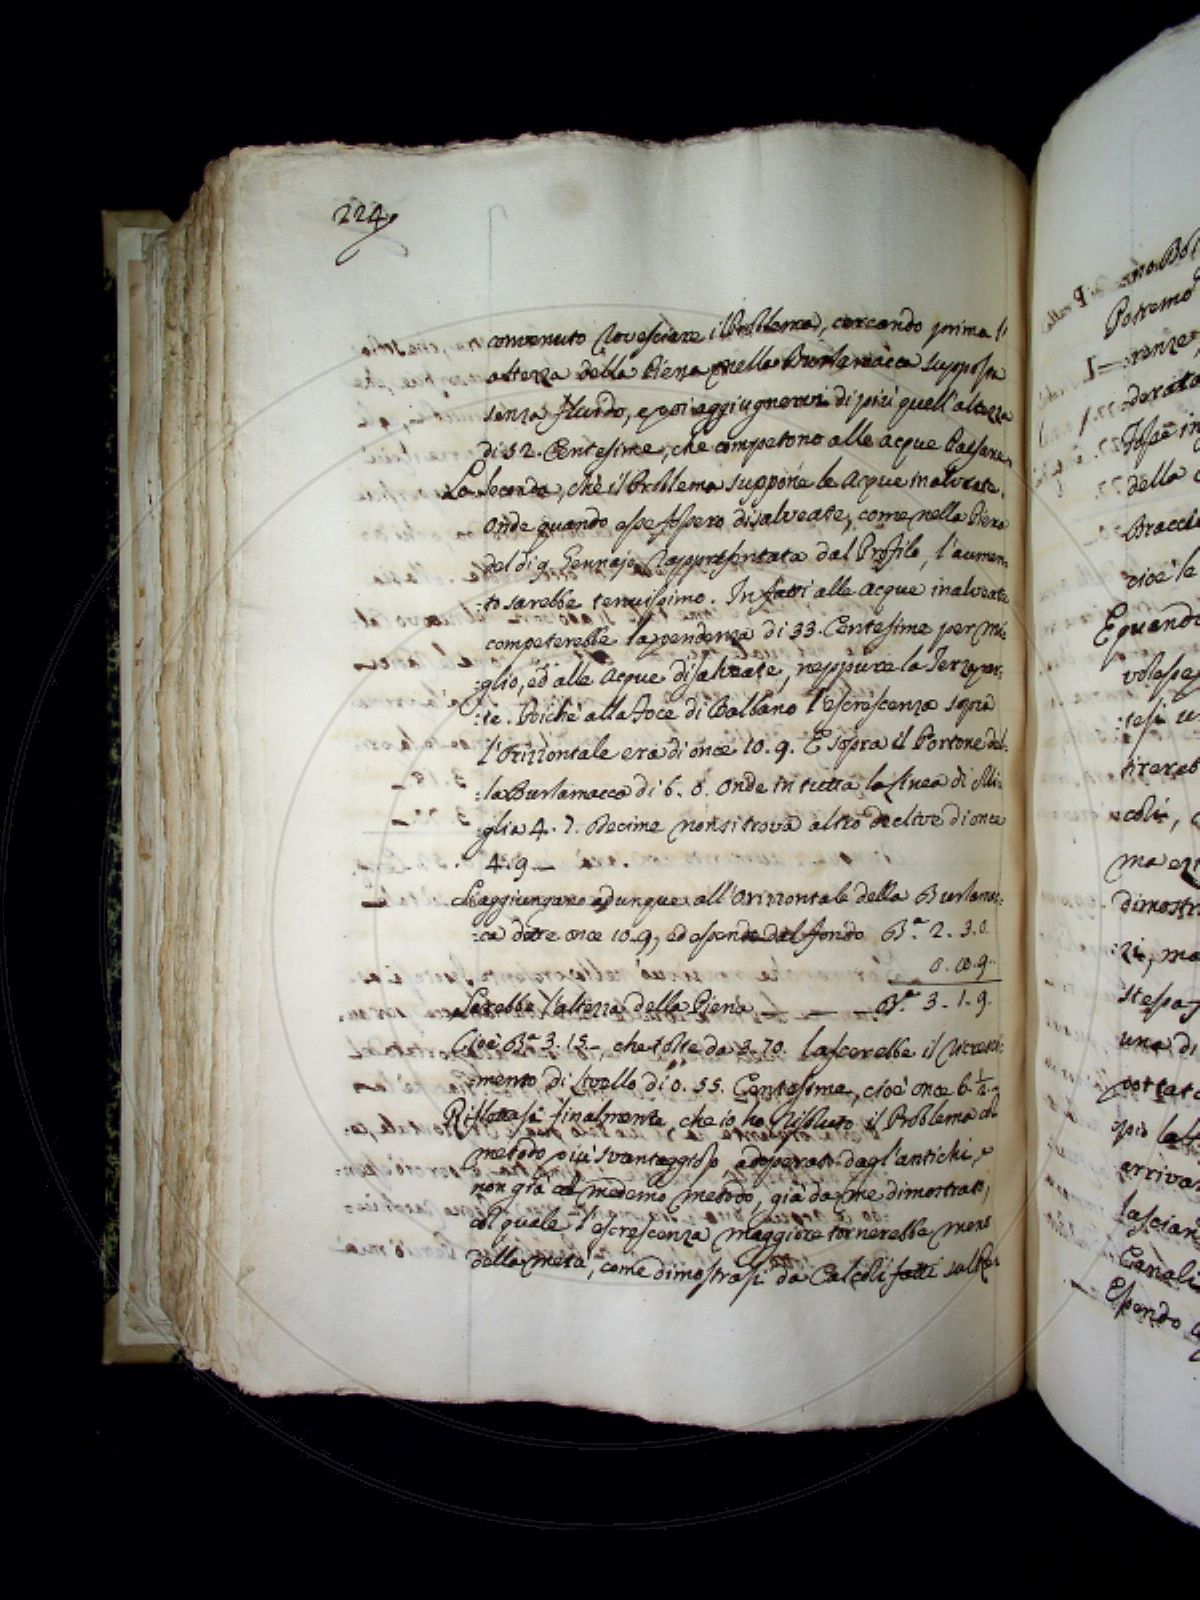 224
convenuto rovesciare il Problema, cercando prima l'
altezza della Piena nella Burlamacca supposta
senza fluido, e poi aggiugnervi di più quell'altezza
di 52. Centesime, che competono alle acque Paesane.
La seconda, che il Problema suppone le Acque inalveate.
Onde quando esse fossero disalveate, come nella Piena
del dì 9. Gennajo rappresentata dal Profilo, l'aumen:
:to sarebbe tenuissimo. In fatti alle Acque inalveate
competerebbe la pendenza di 33. Centesime per Mi:
:glio, ed alle Acque disalveate, neppure la Terza par:
:te. Poiché alla Foce di Balbano l'escrescenza sopra
l'Orizzontale era di once 10. 9. E sopra il Portone del:
:la Burlamacca di 6. 0. Onde in tutta la linea di Mi:
glia 4. 7. Decime non si trova altro declive di once
4. 9 _
Si aggiungano adunque all'Orizzontale della Burlamac:
:ca dette once 10. 9, ed essendo dal fondo Bª 2. 3. 0.
0. 10. 9.
Sarebbe l'altezza della Piena _ _ _ _ Bª. 3. 1. 9.
Cioè Bª 3. 15 _, che tolte da 3. 70. lascerebbe il ricresci:
:mento di Livello di 0. 55. Centesime, cioè once 6 ½ _
Riflettasi finalmente, che io ho risoluto il Problema col
metodo più svantaggioso, adoperato dagl'antichi, e
non già col medemo metodo, già da me dimostrato,
col quale l'escrescenza maggiore tornerebbe meno
della metà, come dimostrasi da Calcoli fatti sul
Potremo
:renze,
:oderata
della
Braccia
cioè le
E quando
:coli,
ma
dimostr
:zi, ma
stessa
una di
portata
arriva
lascian
Canali
Essendo